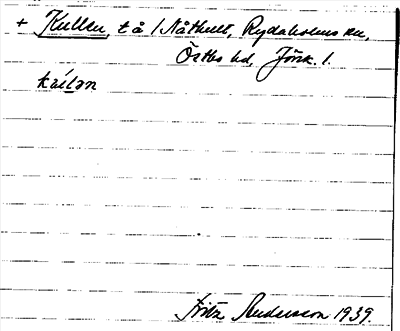 + Kullen, t å / Nåthult, Rydaholms sn,
Östbo hd, Jönk. l.
Fritz Andersson 1939.